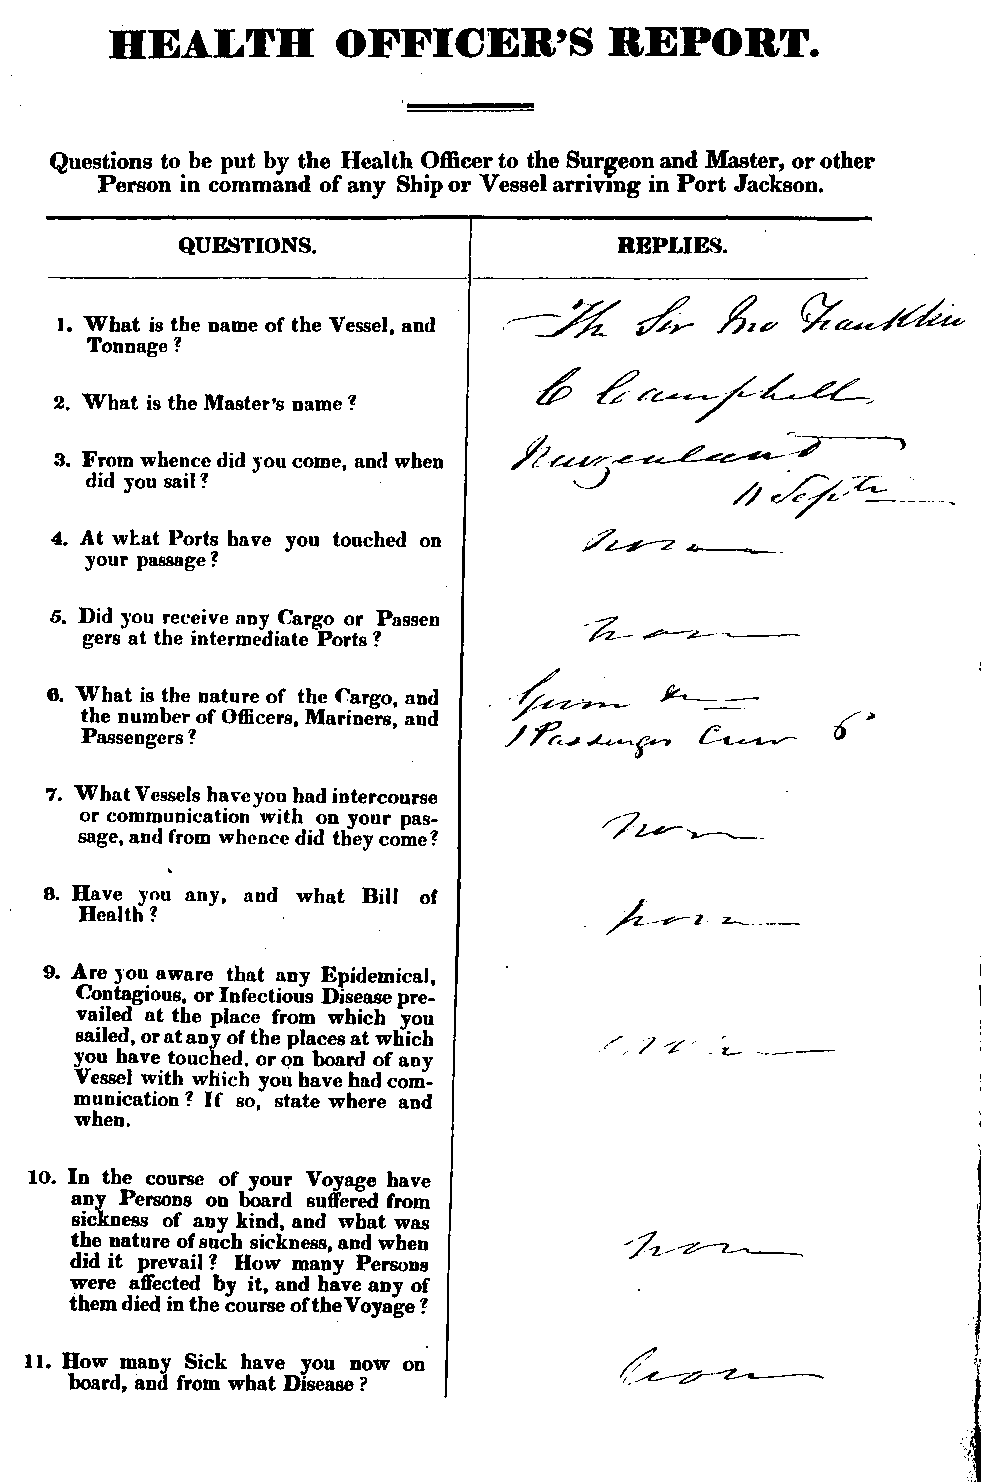 HEALTH OFFICER'S REPORT.
Questions to be put by the Health Officer to the Surgeon and Master, or other
Person in command of any Ship or Vessel arriving in Port Jackson.
QUESTIONS.
REPLIES.
1. What is the name of the Vessel, and
Tonnage?
The Sir Jno Franklin
2. What is the Master's name?
C Campbell
3. From whence did you come, and when
did you sail?
Newzealand
11 Septr
4. At what Ports have you touched on
your passage?
none
5. Did you receive any Cargo or Passen
gers at the intermediate Ports?
none
6. What is the nature of the Cargo, and
the number of Officers, Mariners, and
Passengers?
Gum &c
1 Passenger Crew 6
7. What Vessels have you had intercourse
or communication with on your pas-
sage, and from whence did they come?
none
8. Have you any, and what Bill of
Health?
none
9. Are you aware that any Epidemical,
Contagious, or Infectious Disease pre-
vailed at the place from which you
sailed, or at any of the places at which
you have touched, or on board of any
Vessel with which you have had com-
munication? If so, state where and
when.
10. In the course of your Voyage have
any Persons on board suffered from
sickness of any kind, and what was
the nature of such sickness, and when
did it prevail? How many Persons
were affected by it, and have any of
them died in the course of the Voyage?
none
11. How many Sick have you now on
board, and from what Disease?
none